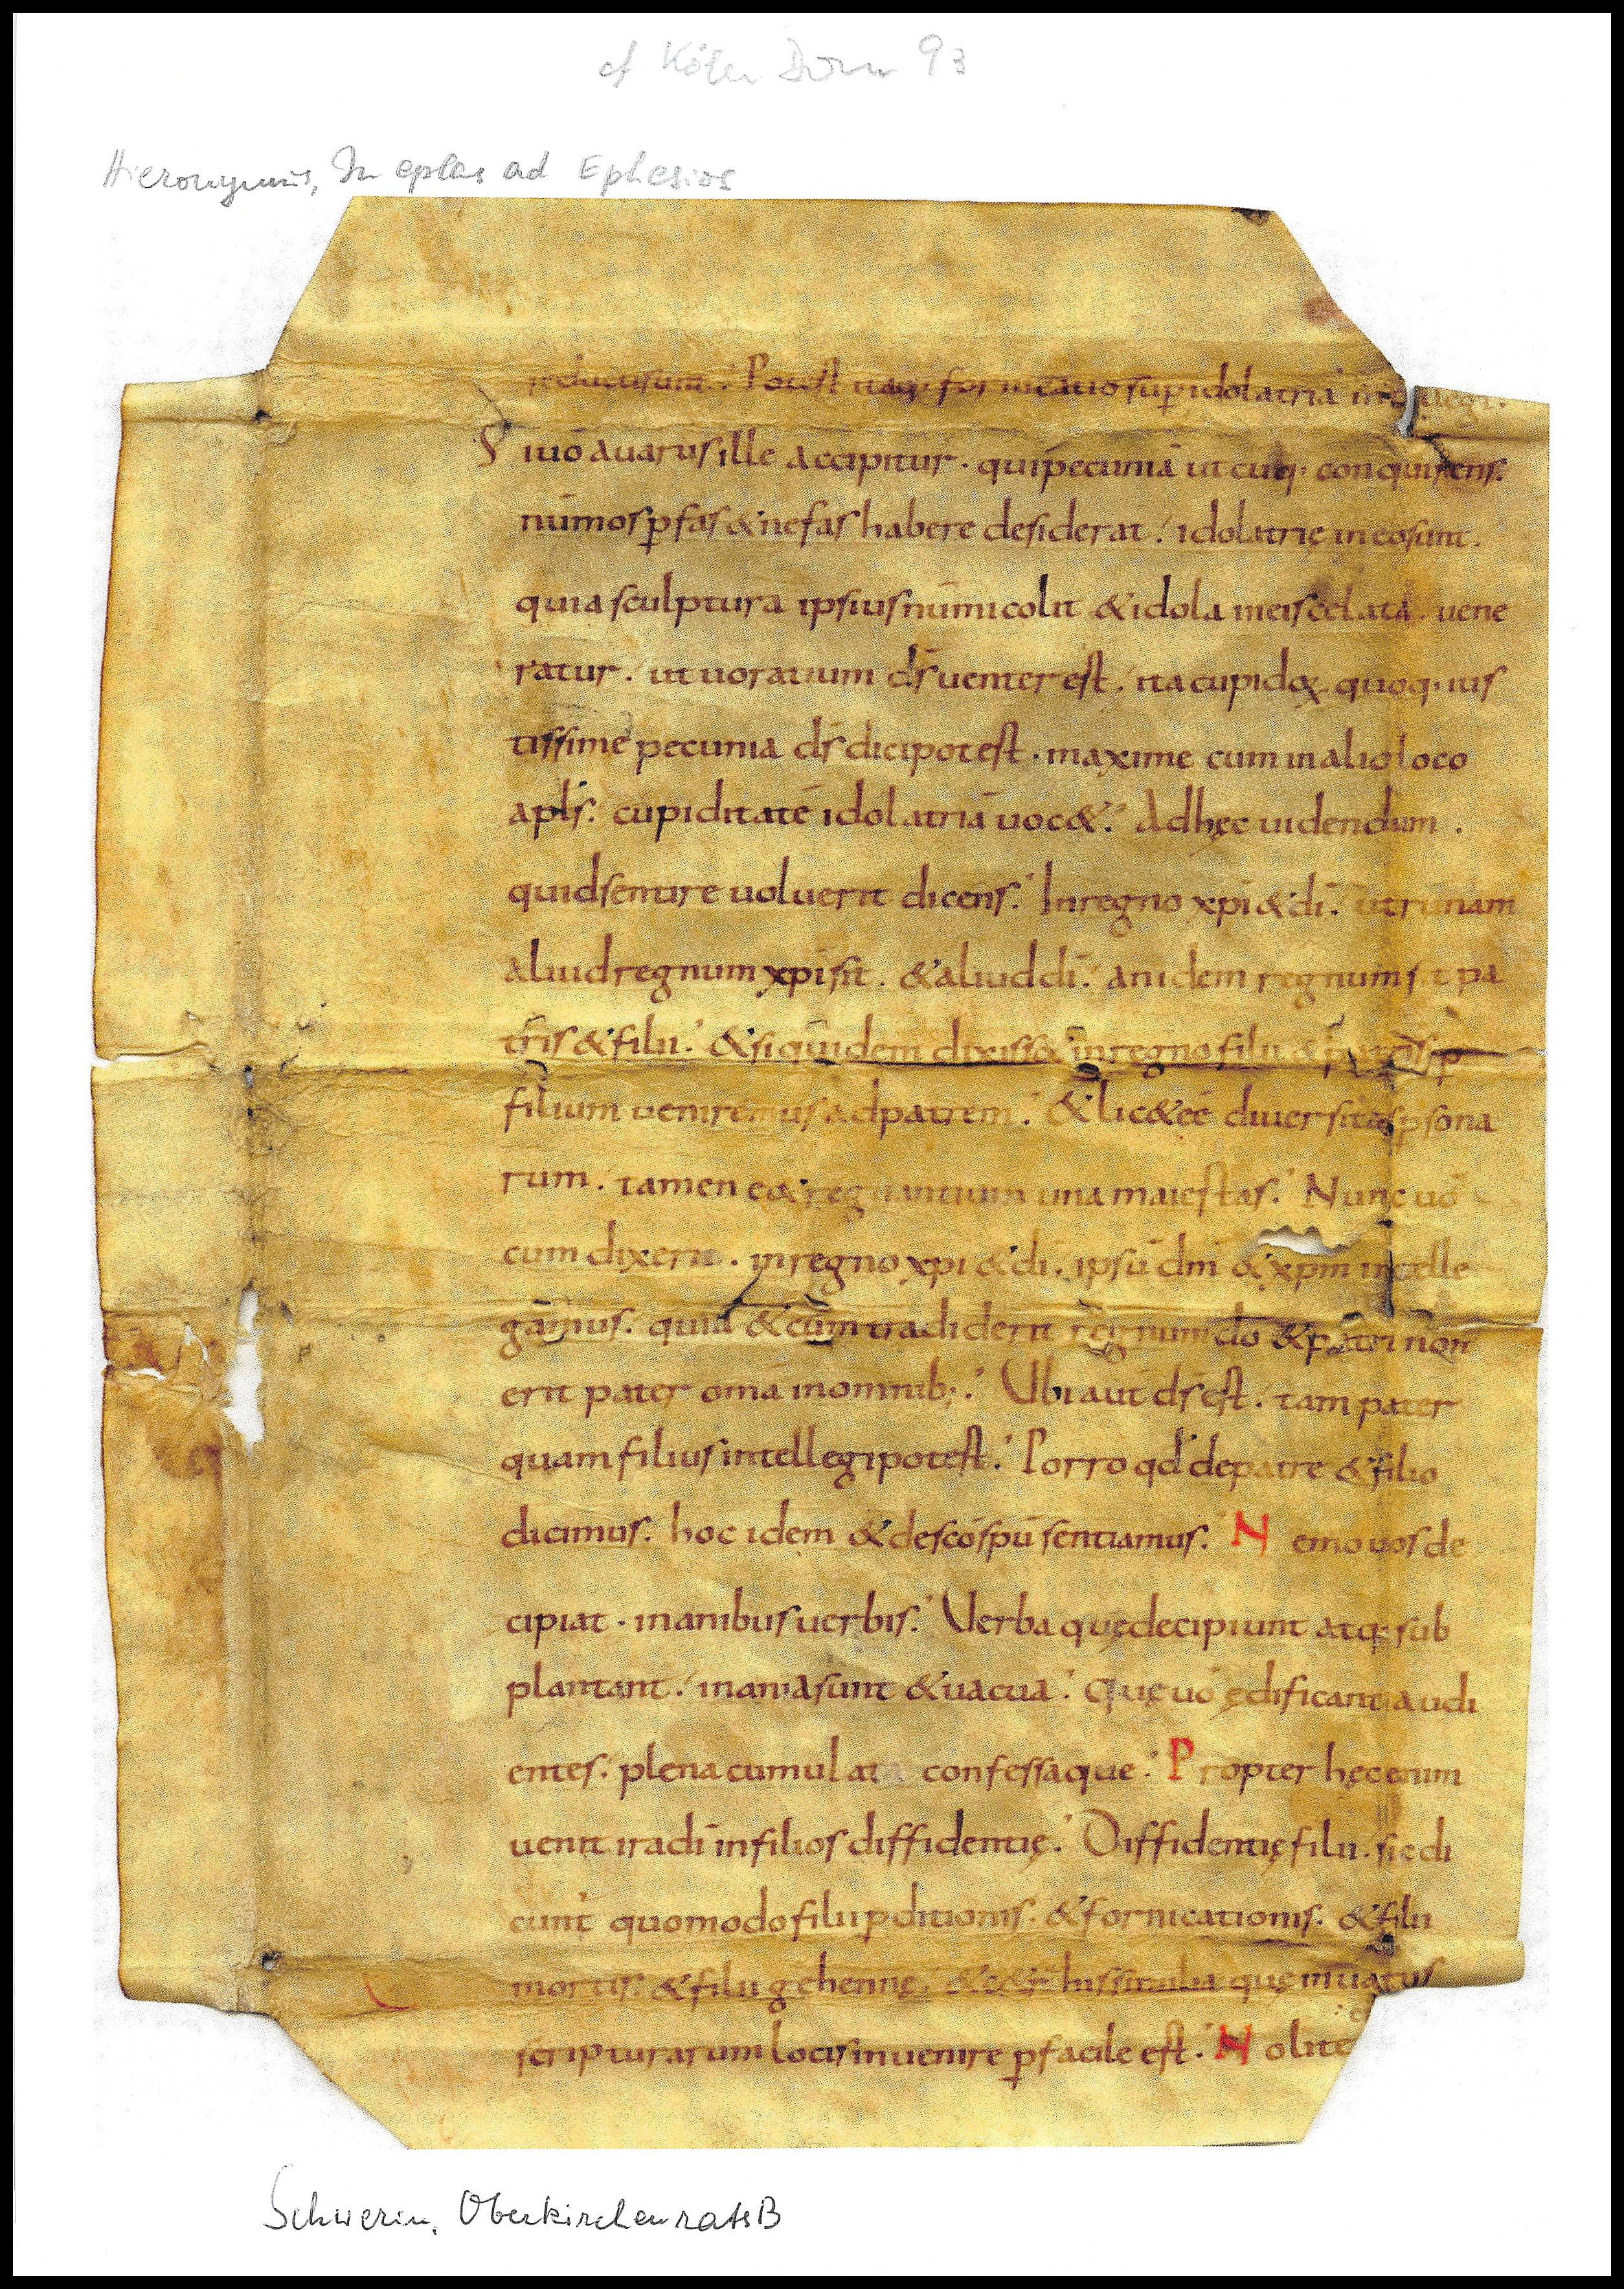 cf Köln Dom 93
Hieronymus, In eplas ad Ephesios
seducusunt. Potest itaq; fornicatio sup idolatria intellegi.
Si uō auarus ille accipitur. qui pecuniā utcūq; conquirens.
nūmos p̲ fas & nefas habere desiderat. idolatrię in eo sunt.
quia sculpturā ipsius nūmi colit & idola in eis celata uene
ratur. ut uoratium d̄s uenter est. ita cupidoꝝ quoq; ius
tissime pecunia d̄s dici potest. maxime cum in alio loco
apl̄s. cupiditatē idolatriā uoc&. Ad hęc uidendum.
quid sentire uoluerit dicens. In regno xp̄i & dī. utrūnam
aliud regnum xp̄i sit. & aliud dī. an idem regnum sit pa
tris & filii. & si quidem dixiss& in regno filii & patris p̲
filium ueniremus ad patrem. & lic& eē diuersitas p̲sona
rum. tamen e& regnantium una maiestas. Nunc uō
cum dixerit. in regno xp̄i & dī. ipsū dm̄ & xp̄m intelle
gamus. quia & cum tradiderit regnum dō & patri non
erit pater omā in omnib;. Ubi aut̄ d̄s est. tam pater
quam filius intellegi potest. Porro qd̄ de patre & filio
dicimus. hoc idem & de scō sp̄u sentiamus. Nemo uos de
cipiat. inanibus uerbis. Verba quę decipiunt atq; sub
plantant. inania sunt & uacua. Quę uō ędificant audi
entes. plena cumulata confessaque. Propter hęc enim
uenit ira dī in filios diffidentię. Diffidentię filii. sic di
cunt quomodo filii p̲ditionis. & fornicationis. & filii
mortis. & filii gehennę. & c&r̄ his similia quę in uariis
scripturarum locis inuenire p̲facile est. Nolite
Schwerin, OberkirchenratsB